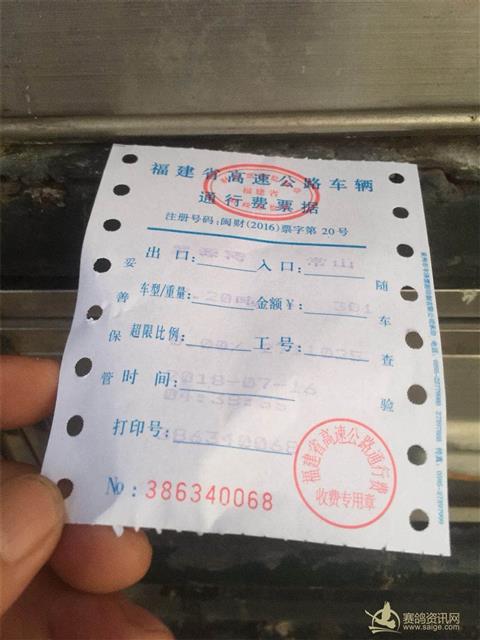 福建省高速公路车辆
通行费票据
福建省
注册号码:闽财(2016)票字第20号
出口: 入口: 常山
车型/重量: 金额¥: 301
超限比例: 工号:
时间: 2018-07-16
打印号: 86340068
№: 386340068
妥善保管
随车查验
福建省高速公路通行费
收费专用章
赛鸽资讯网
www.saige.com